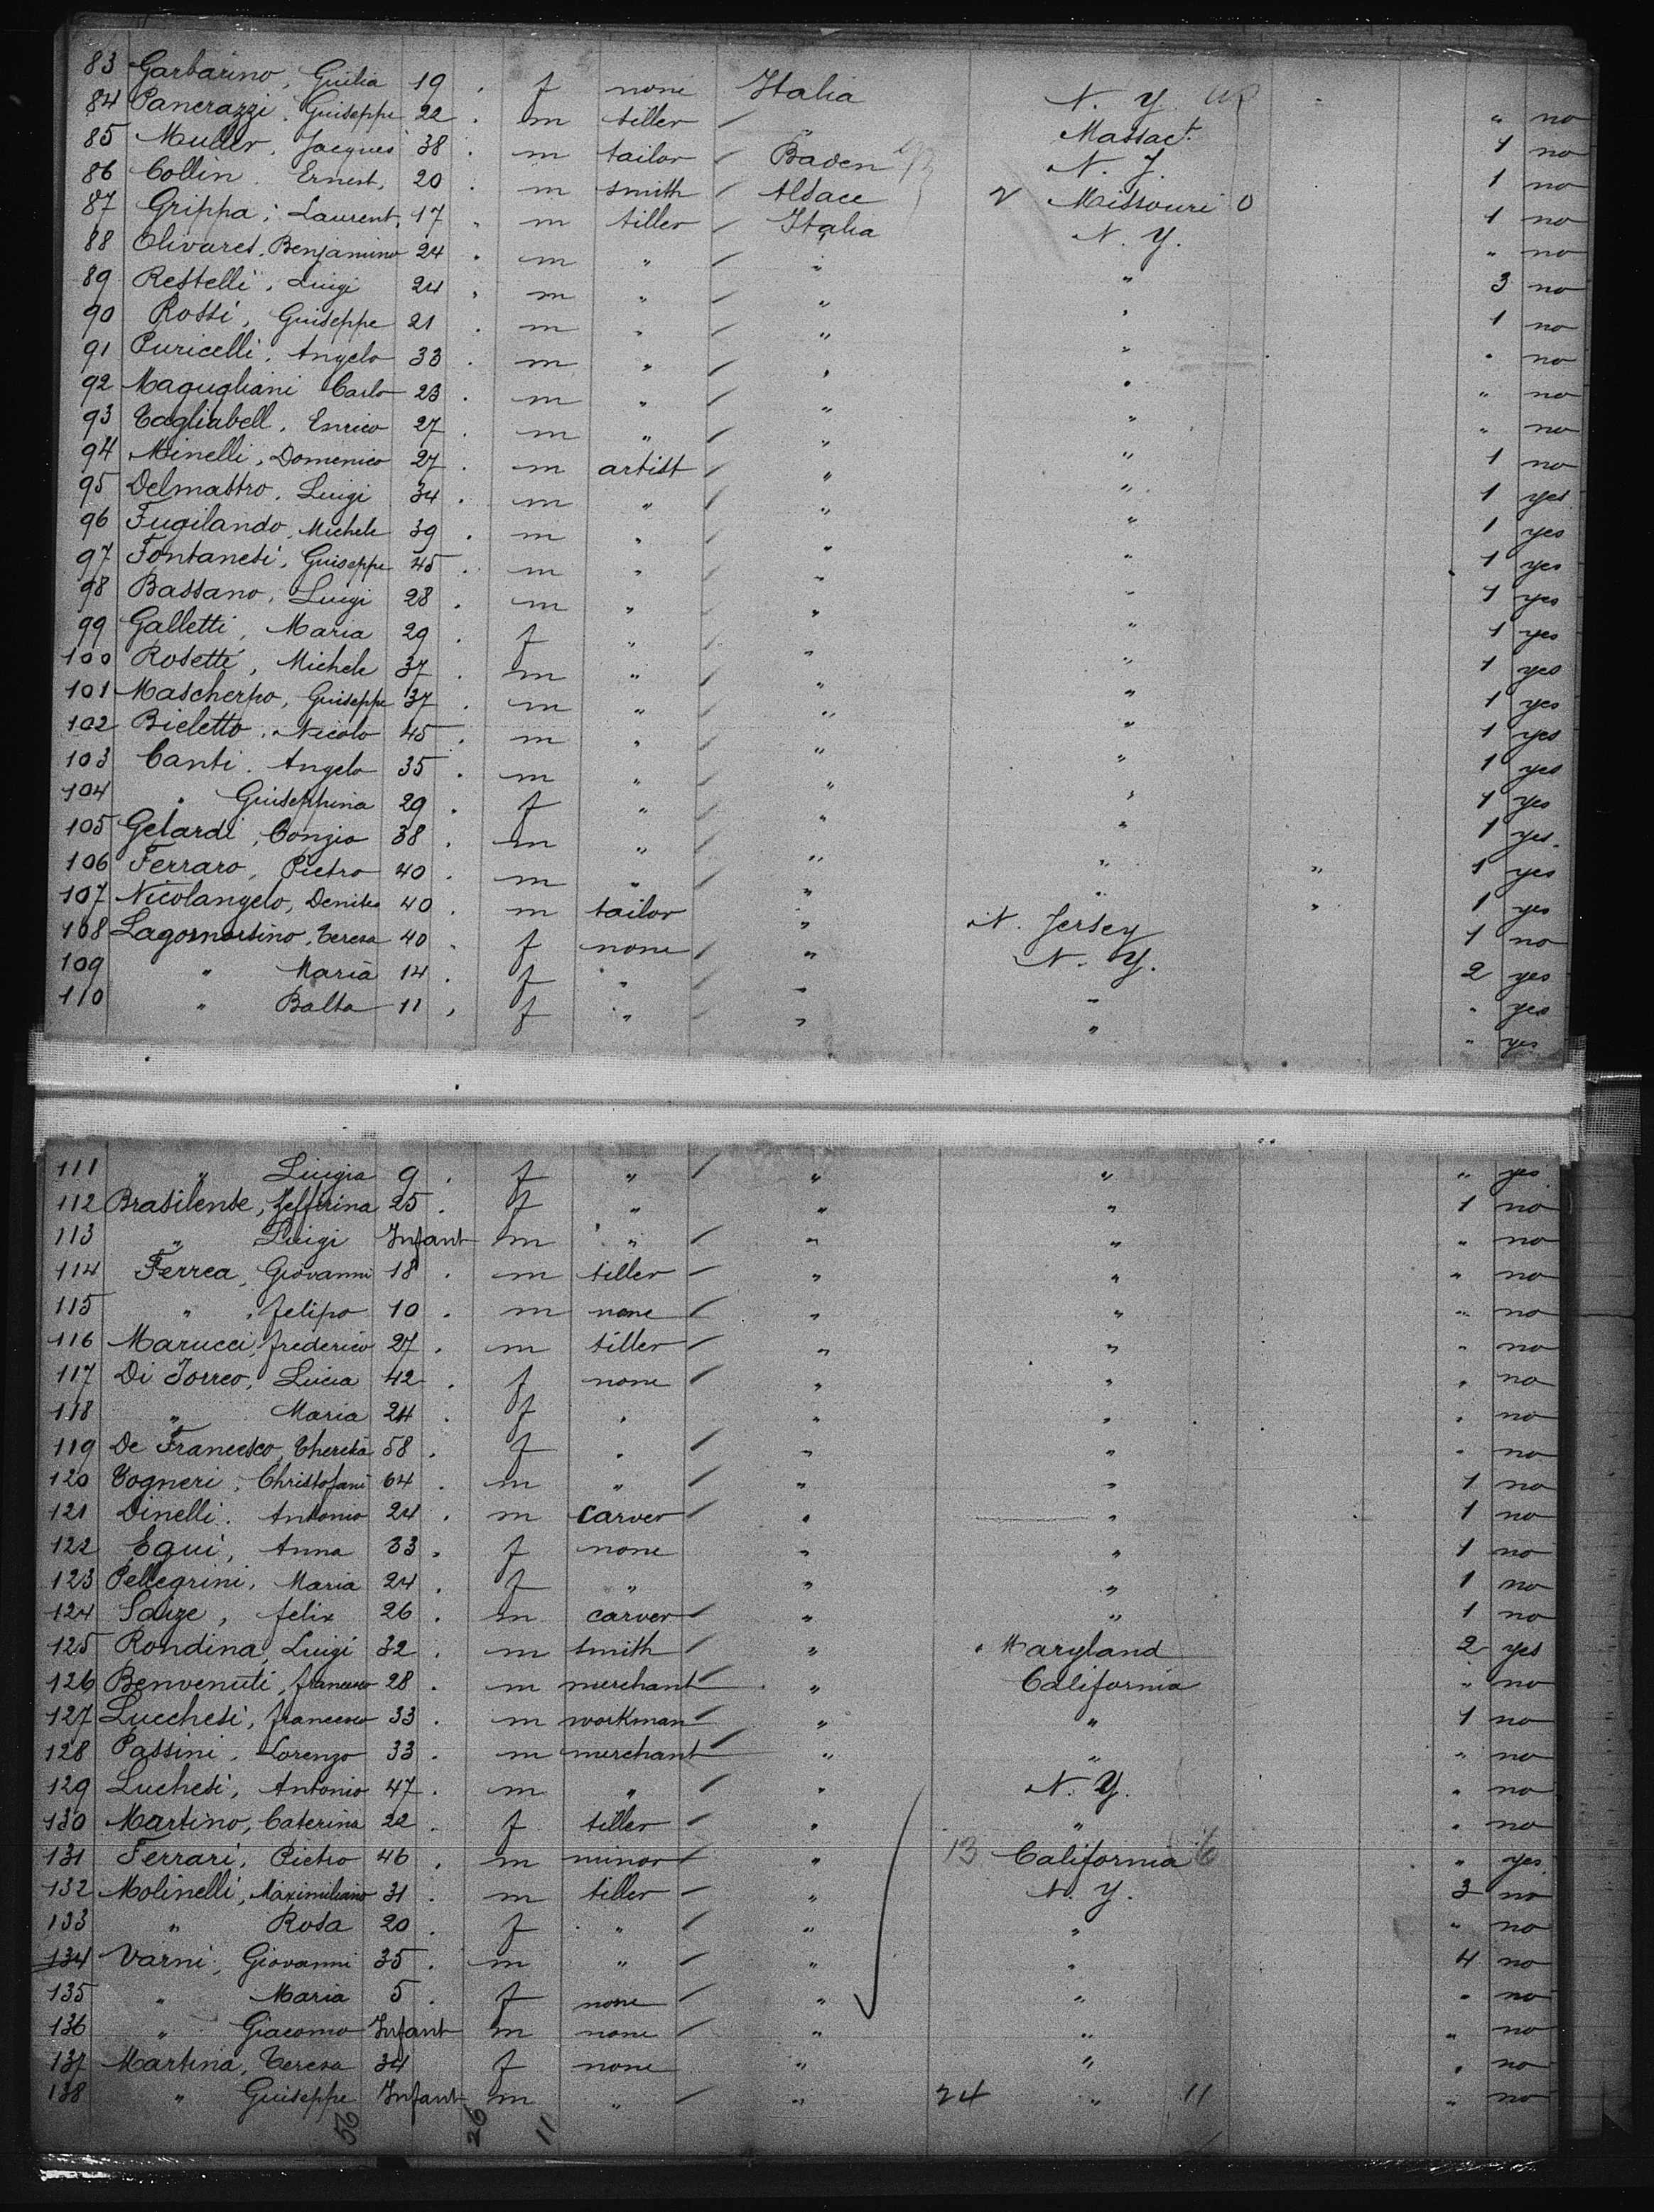 83 Garbarino, Giulia 19 . f none Italia N. Y. " no
84 Pancrazzi, Guiseppe 22 . m tiller / " Massact. 1 no
85 Muller, Jacques 38 . m tailor / Baden N. Y. 1 no
86 Collin, Ernest, 20 . m smith / Alsace 2 Missouri 0 1 no
87 Grippa, Laurent, 17 " m tiller / Italia N. Y. " no
88 Olivares, Benjamino 24 . m " / " " 3 no
89 Restelli, Luigi 24 . m " / " " 1 no
90 Rossi, Guiseppe 21 . m " / " " " no
91 Puricelli, Angelo 33 . m " / " " " no
92 Magugliani Carlo 23 . m " / " " " no
93 Tagliabell, Enrico 27 . m " / " " 1 no
94 Minelli, Domenico 27 . m artist / " " 1 yes
95 Delmastro, Luigi 34 . m " / " " 1 yes
96 Fugilando, Michele 39 . m " / " " 1 yes
97 Fontanesi, Guiseppe 45 . m " / " " 1 yes
98 Bassano, Luigi 28 . m " / " " 1 yes
99 Galletti, Maria 29 . f " / " " 1 yes
100 Rosetti, Michele 37 . m " / " " 1 yes
101 Mascherpo, Guiseppe 37 . m " / " " 1 yes
102 Bieletto, Nicolo 45 . m " / " " 1 yes
103 Canti, Angelo 35 . m " / " " 1 yes
104 " Guiseppina 29 . f " / " " 1 yes
105 Gelardi, Conzio 38 . m " / " " " 1 yes
106 Ferraro, Pietro 40 . m " / " " " 1 yes
107 Nicolangelo, 40 . m tailor " N. Jersey 1 no
108 Lagomarsino, Teresa 40 . f none / " N. Y. 2 yes
109 " Maria 14 . f " / " " " yes
110 " Balta 11 . f " / " " " yes
111 " Luigia 9 . f " / " " " yes
112 Brasilense, Zefferina 25 . f " " " 1 no
113 " Luigi Infant m " / " " " no
114 Ferrea, Giovanni 18 . m tiller / " " " no
115 " , felipo 10 . m none / " " " no
116 Marucci, frederico 27 . m tiller / " " " no
117 Di Jorreo, Lucia 42 . f none / " " " no
118 " Maria 24 . f " " " " no
119 De Francesco, Theresa 58 . f " / " " " no
120 Togneri, Christofani 64 . m " / " " 1 no
121 Dinelli, Antonio 24 . m carver / " " 1 no
122 Equi, Anna 33 . f none " " 1 no
123 Pellegrini, Maria 24 . f " " " 1 no
124 Saize, felix 26 . m carver / " " 1 no
125 Rondina, Luigi 32 . m smith / " Maryland 2 yes
126 Benvenuti, francesco 28 . m merchant / " California " no
127 Lucchesi, francesco 33 . m workman / " " 1 no
128 Passini, Lorenzo 33 . m merchant / " " " no
129 Luchesi, Antonio 47 . m " / " N. Y. " no
130 Martino, Caterina 22 . f tiller / " " " no
131 Ferrari, Pietro 46 . m minor / " 13 California 6 " yes
132 Molinelli, Maximiliano 31 . m tiller / " N. Y. 3 no
133 " Rosa 20 . f " / " " " no
134 Varni, Giovanni 35 . m " / " " 4 no
135 " Maria 5 . f none / " " " no
136 " Giacomo Infant m none / " " " no
137 Martina, Teresa 34 f none " " " no
138 " Guiseppe Infant m " / " 24 " 11 " no
56 26 11